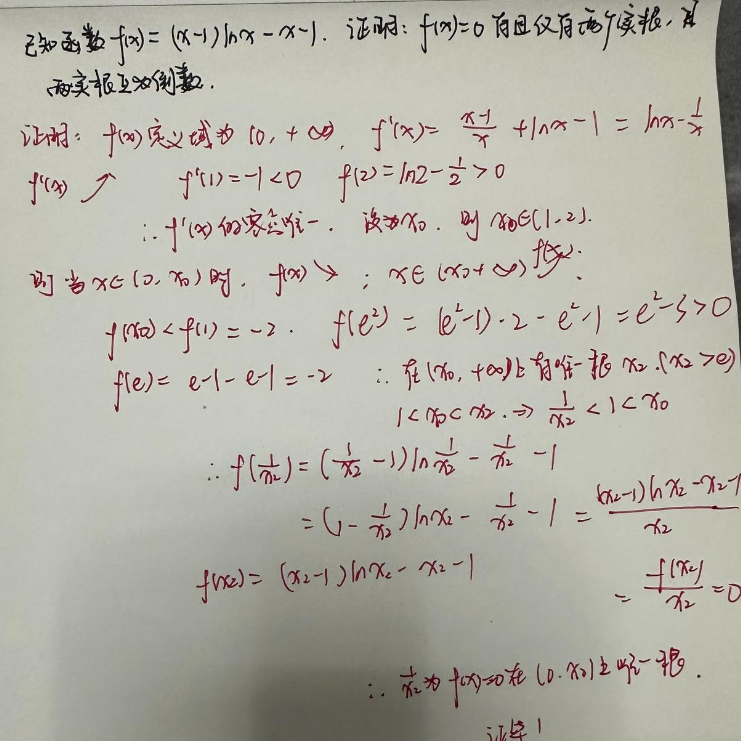 已知函数 f(x)=(x-1)lnx-x-1. 证明: f(x)=0 有且仅有两个实根, 且
两实根互为倒数.
证明: f(x)定义域为(0,+∞), f'(x)= \frac{x-1}{x}+lnx-1 = lnx-\frac{1}{x}
f'(x) ↗ f'(1)=-1<0 f(2)=ln2-\frac{1}{2}>0
∴ f'(x)的零点唯一. 设为x₀. 则 x₀∈(1,2).
则当x∈(0,x₀)时, f(x)↘ ; x∈(x₀+∞) f(x)↗.
f(x₀)<f(1)=-2. f(e²)=(e²-1)·2-e²-1=e²-3>0
f(e)=e-1-e-1=-2 ∴ 在(x₀,+∞)上有唯一根 x₂.(x₂>e)
1<x₀<x₂.⇒ \frac{1}{x₂}<1<x₀
∴ f(\frac{1}{x₂})=(\frac{1}{x₂}-1)ln\frac{1}{x₂}-\frac{1}{x₂}-1
=(1-\frac{1}{x₂})lnx₂-\frac{1}{x₂}-1=\frac{(x₂-1)lnx₂-x₂-1}{x₂}
f(x₂)=(x₂-1)lnx₂-x₂-1
=\frac{f(x₂)}{x₂}=0
∴ \frac{1}{x₂}为 f(x)=0在(0,x₀)上唯一根.
证毕!